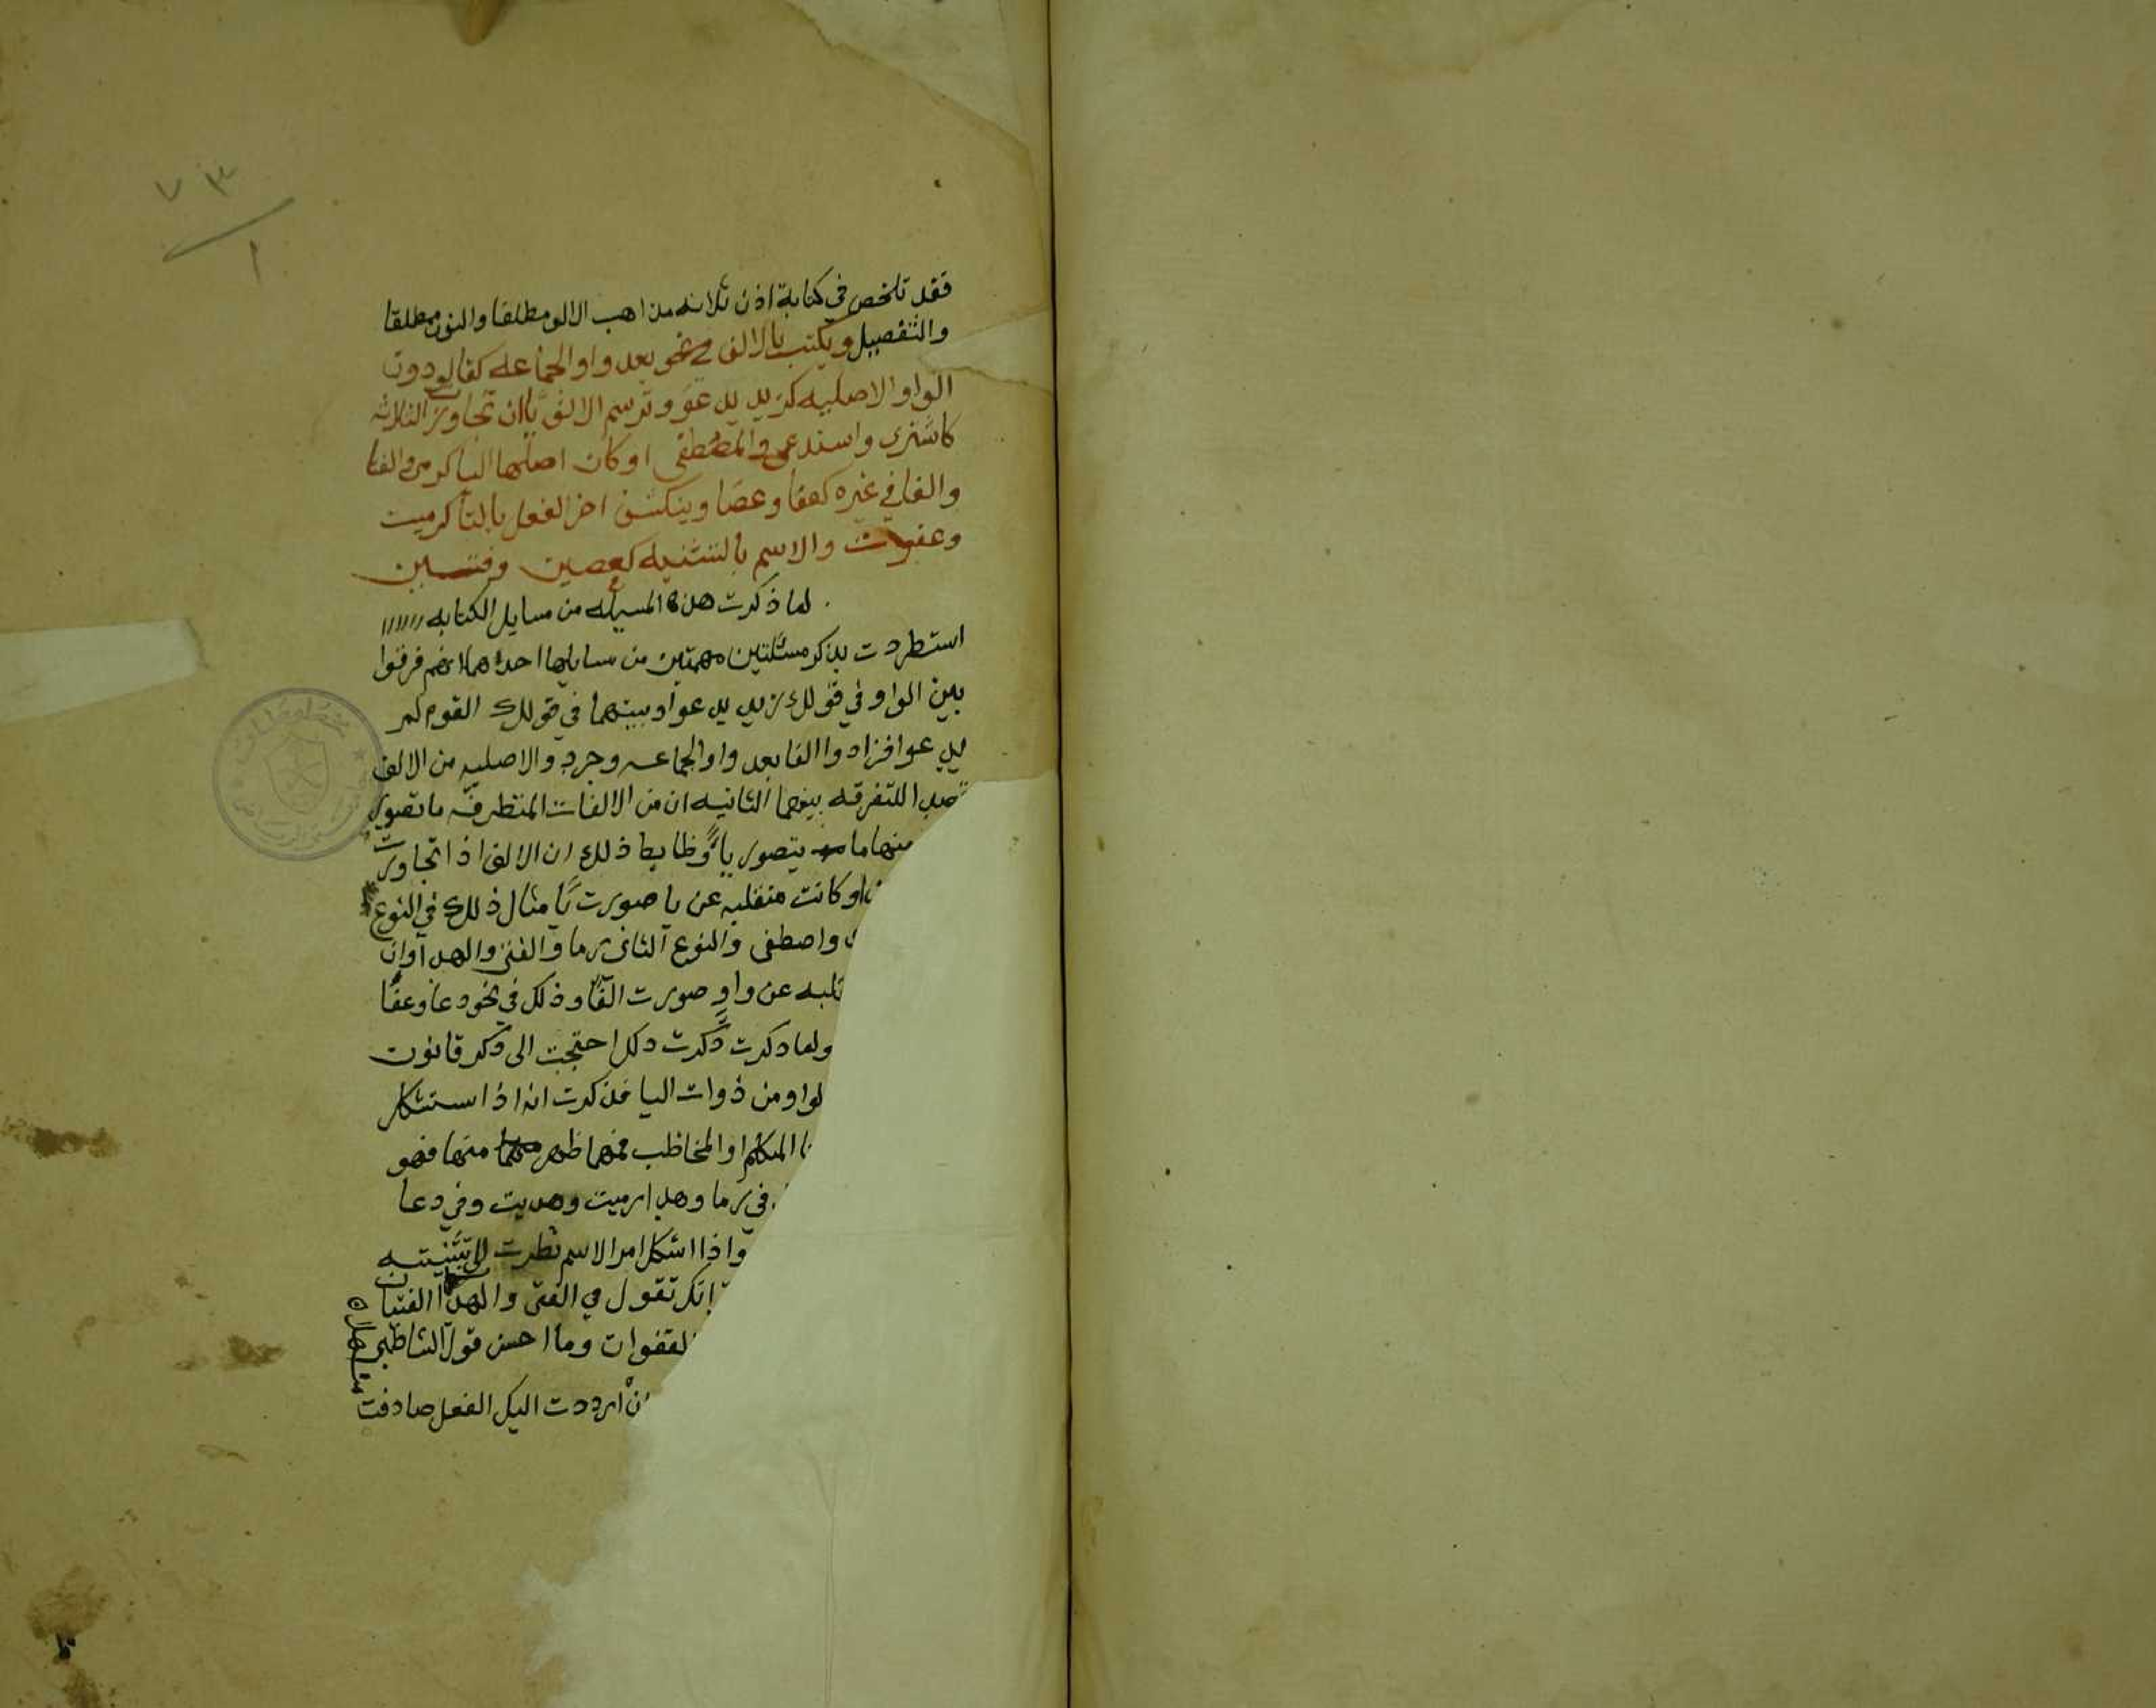 ٧٣
١
فقد تلخص في كتابة اذن ثلاثه مذاهب الالف مطلقا والنون مطلقا
والتفصيل ويكتب بالالف في نحو بعد واو الجماعه كقالو دون
الواو الاصليه كزيد يدعو وترسم الالف يا ان تجاوزت الثلاثه
كاشترى واستدعى والمصطفى او كان اصلها اليا كرمى والفتا
والفا في غيره كعفا وعصا وينكشف اخر الفعل بالتا كرميت
وعفوت والاسم بالتثنيه كعصين وفتيين
لما ذكرت هذه المسيله من مسايل الكتابه
استطردت بذكر مسئلتين مهمتين من مسايلها احداهما انهم فرقوا
بين الواو في قولك زيد يدعو او بينهما في قولك القوم لم
يدعوا فزادوا الفا بعد واو الجماعه وجردو الاصليه من الالف
قصدا للتفرقه بينهما الثانيه ان من الالفات المتطرفه ما تصور
منهاما يتصور يا وظابط ذلك ان الالف اذا تجاوزت
او كانت منقلبه عن يا صورت يا مثال ذلك في النوع
واصطفى والنوع الثاني رما والفتى والهدا وان
قلبه عن واو صورت الفا وذلك في نحو دعا وعفا
ولما دكرت دكرت دكل احتجت الى دكر قانون
لواو من ذوات اليا فذكرت انه اذا استشكل
المتكلم او المخاطب فمهما ظهر منها فهو
في رما وهدا رميت وهديت وفي دعا
واذا اشكل امر الاسم نظرت الى تثنيته
انكل تقول في الفتى والهدا الفتيان
القفوان وما احسن قول الشاطبي
رددت اليكل الفعل صادفت
منهلا